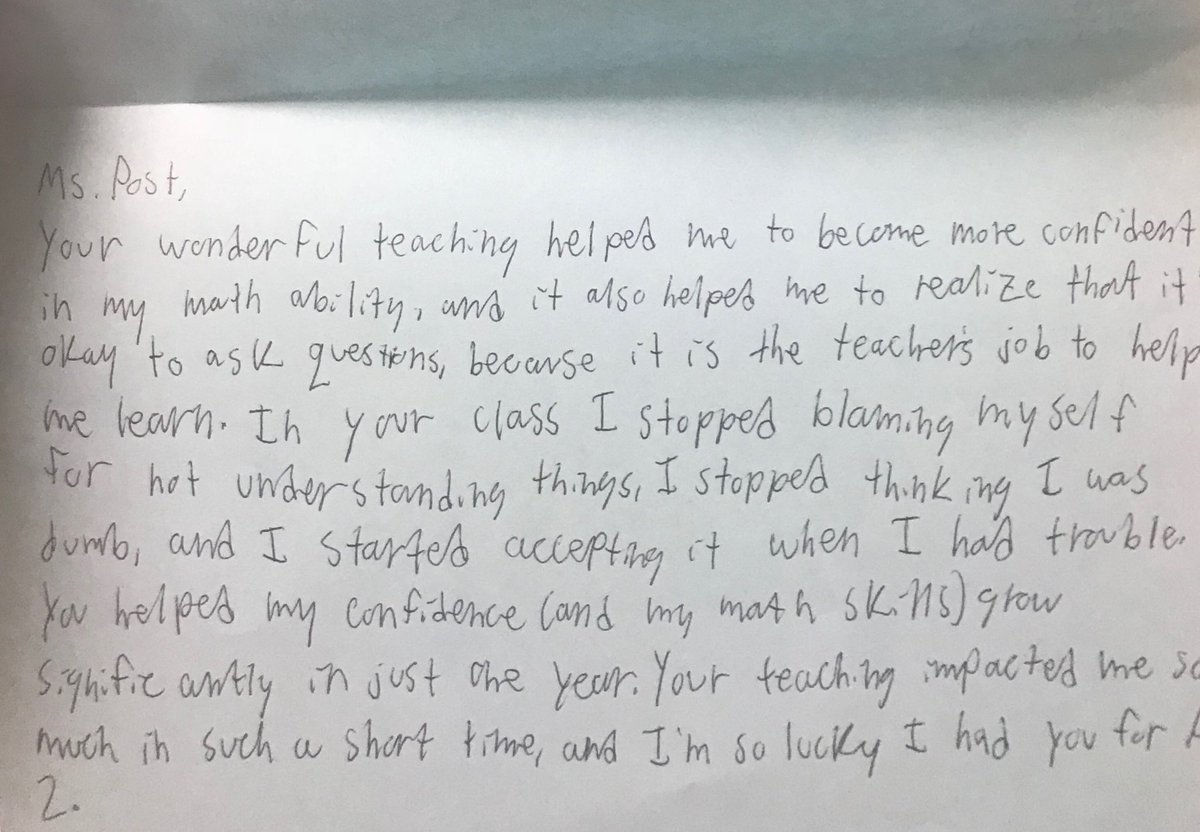 Ms. Post,
Your wonderful teaching helped me to become more confident
in my math ability, and it also helped me to realize that it
okay to ask questions, because it is the teacher's job to help
me learn. In your class I stopped blaming myself
for not understanding things, I stopped thinking I was
dumb, and I started accepting it when I had trouble.
You helped my confidence (and my math skills) grow
significantly in just one year. Your teaching impacted me so
much in such a short time, and I'm so lucky I had you for
2.